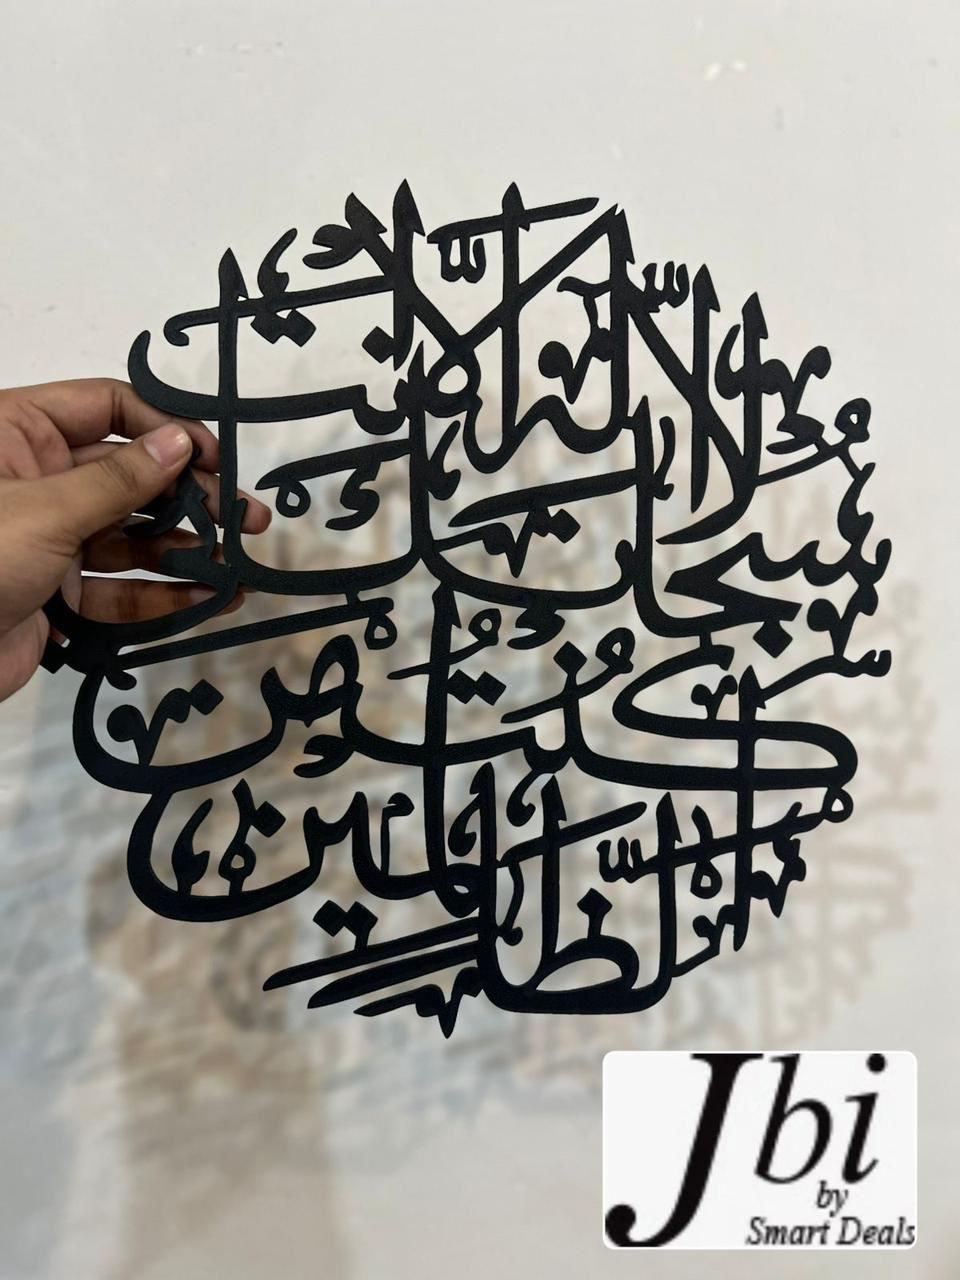 لا إله إلا أنت
سبحانك إني
كنت من
الظالمين
Jbi
by
Smart Deals